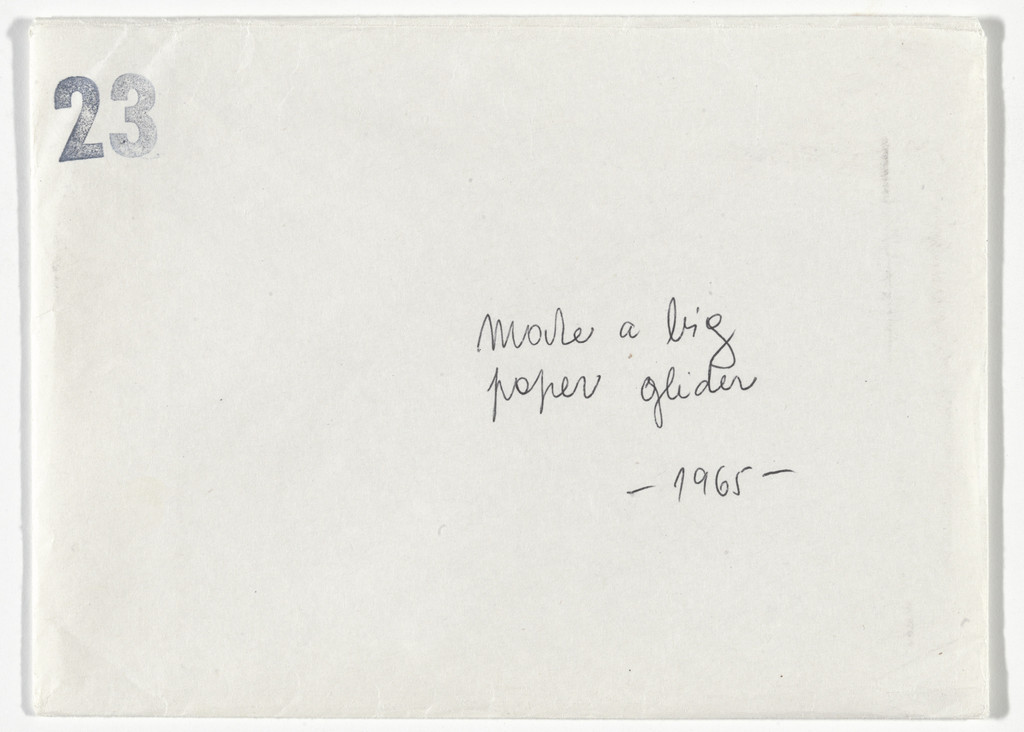 23
Made a big
paper glider
– 1965 –